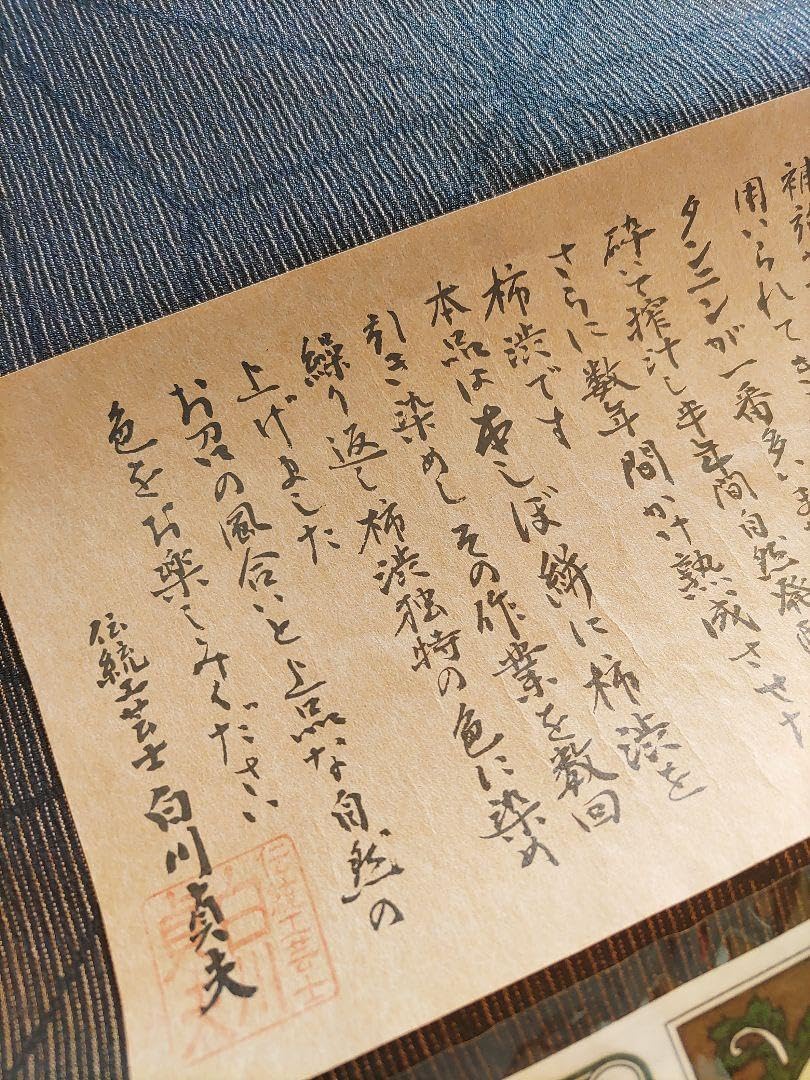 用いられてき
タンニンが一番多いま
砕いて搾汁し半年間自然発
さらに数年間かけ熟成させた
柿渋です
本品は本しぼ絣に柿渋を
引き染めし その作業を数回
繰り返し柿渋独特の色に染め
上げました
お召の風合いと上品な自然の
色をお楽しみください
伝統工芸士 白川貞夫
伝統工芸士